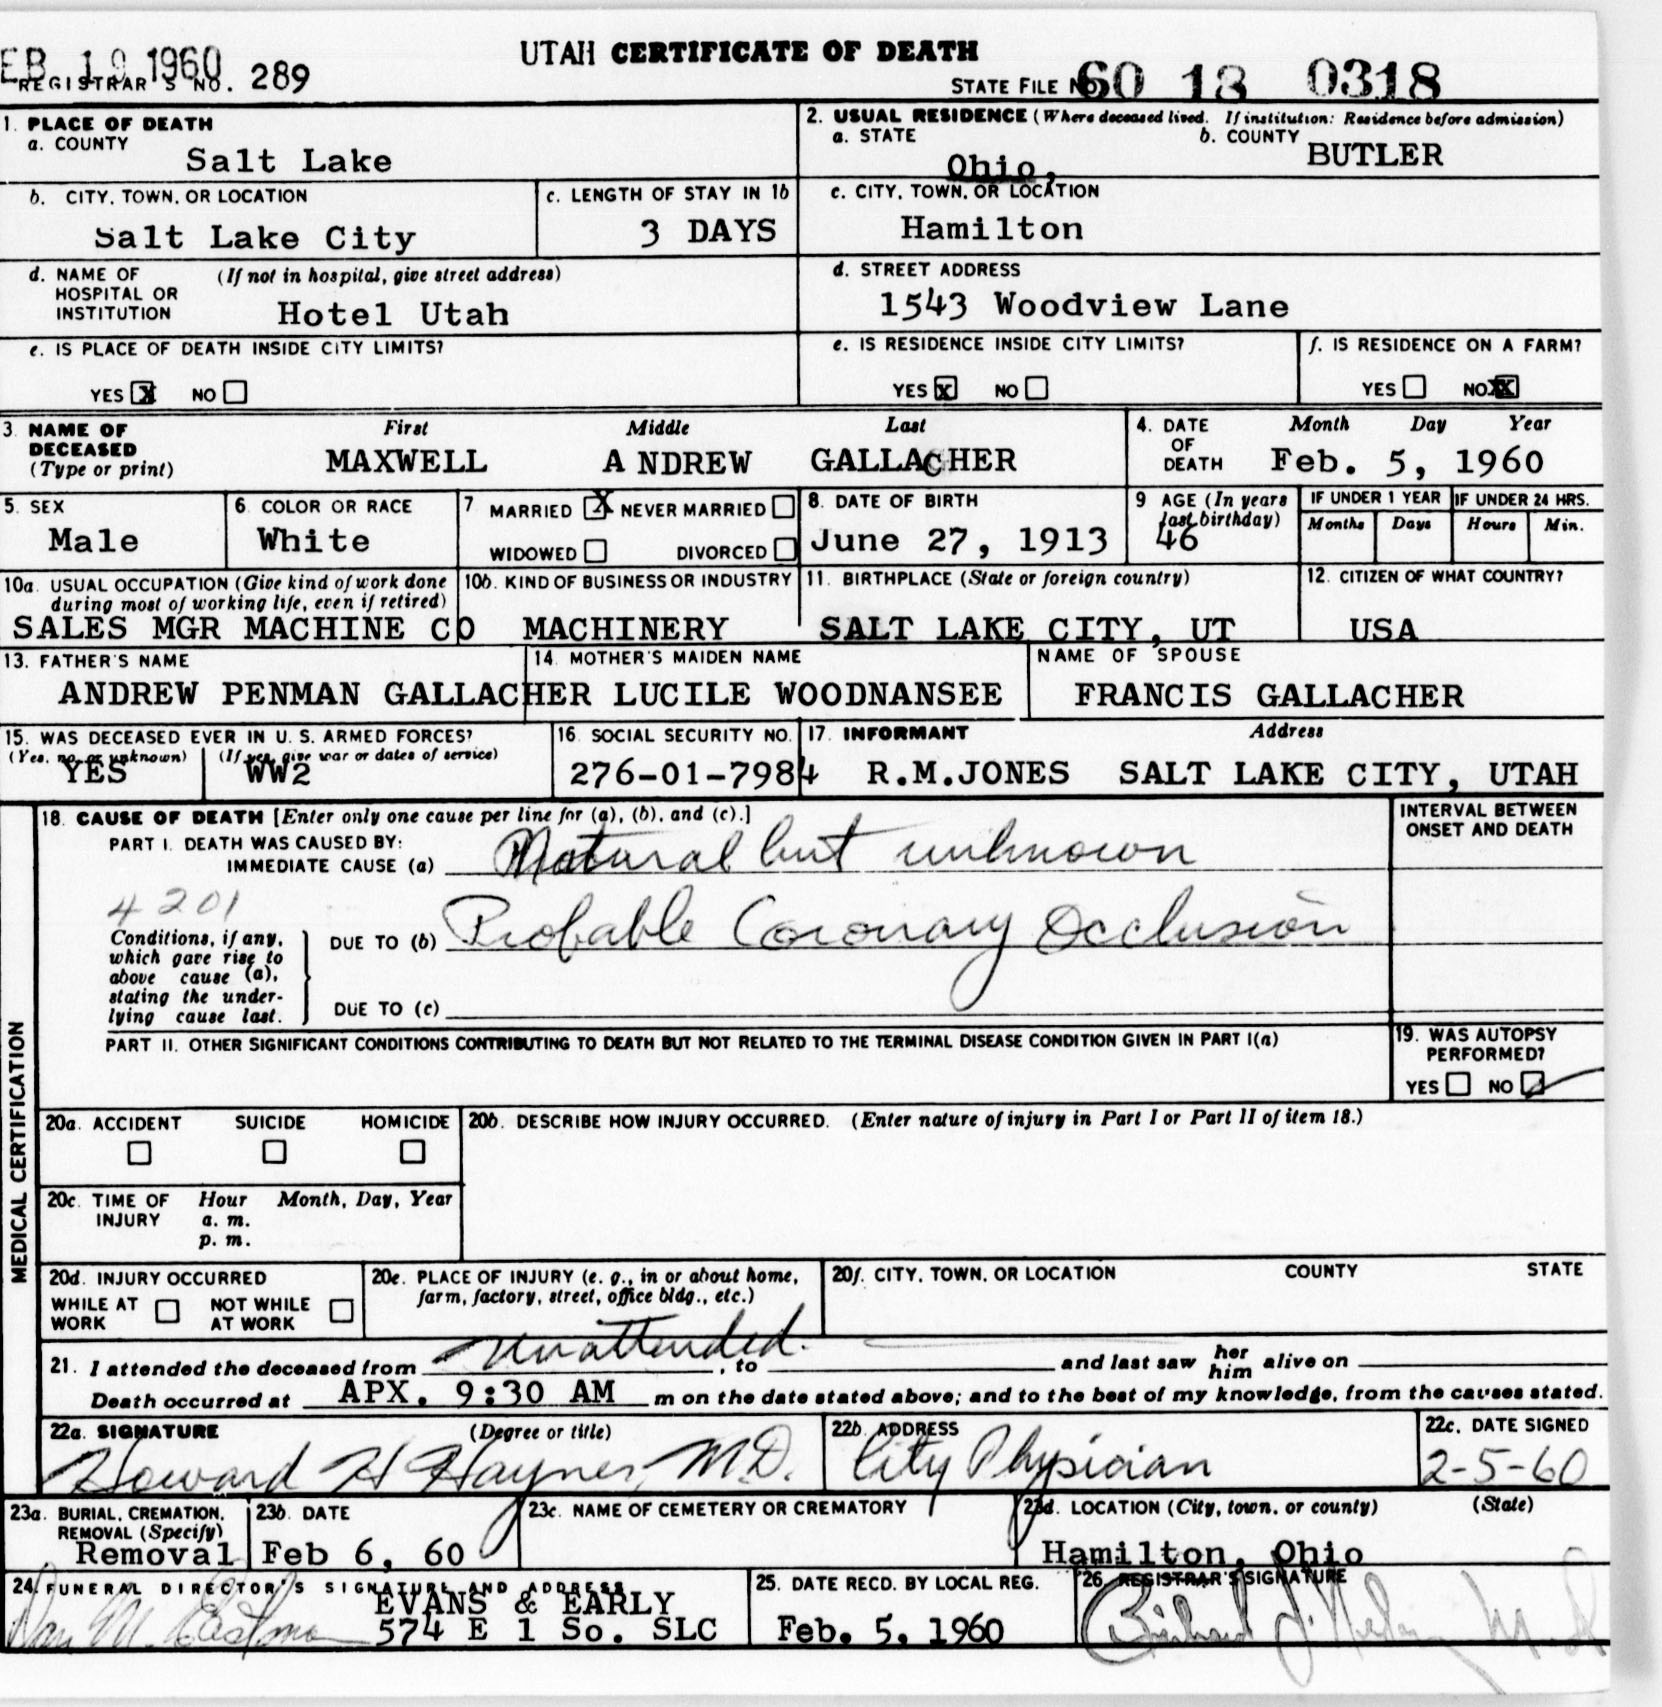 FEB 19 1960
UTAH CERTIFICATE OF DEATH
REGISTRAR'S NO. 289
STATE FILE NO. 60 18 0318
1. PLACE OF DEATH
a. COUNTY
Salt Lake
2. USUAL RESIDENCE (Where deceased lived. If institution: Residence before admission)
a. STATE
Ohio,
b. COUNTY
BUTLER
b. CITY, TOWN, OR LOCATION
Salt Lake City
c. LENGTH OF STAY IN 1b
3 DAYS
c. CITY, TOWN, OR LOCATION
Hamilton
d. NAME OF HOSPITAL OR INSTITUTION
(If not in hospital, give street address)
Hotel Utah
d. STREET ADDRESS
1543 Woodview Lane
e. IS PLACE OF DEATH INSIDE CITY LIMITS?
YES X NO
e. IS RESIDENCE INSIDE CITY LIMITS?
YES X NO
f. IS RESIDENCE ON A FARM?
YES NO XX
3. NAME OF DECEASED (Type or print)
First Middle Last
MAXWELL A NDREW GALLACHER
4. DATE OF DEATH
Month Day Year
Feb. 5, 1960
5. SEX
Male
6. COLOR OR RACE
White
7 MARRIED X NEVER MARRIED
WIDOWED DIVORCED
8. DATE OF BIRTH
June 27, 1913
9 AGE (In years last birthday)
46
IF UNDER 1 YEAR
Months Days
IF UNDER 24 HRS.
Hours Min.
10a. USUAL OCCUPATION (Give kind of work done during most of working life, even if retired)
SALES MGR MACHINE CO
10b. KIND OF BUSINESS OR INDUSTRY
MACHINERY
11. BIRTHPLACE (State or foreign country)
SALT LAKE CITY, UT
12. CITIZEN OF WHAT COUNTRY?
USA
13. FATHER'S NAME
ANDREW PENMAN GALLACHER
14. MOTHER'S MAIDEN NAME
LUCILE WOODNANSEE
NAME OF SPOUSE
FRANCIS GALLACHER
15. WAS DECEASED EVER IN U. S. ARMED FORCES?
(Yes, no, or unknown) (If yes, give war or dates of service)
YES WW2
16. SOCIAL SECURITY NO.
276-01-7984
17. INFORMANT Address
R.M.JONES SALT LAKE CITY, UTAH
MEDICAL CERTIFICATION
18. CAUSE OF DEATH [Enter only one cause per line for (a), (b), and (c).]
INTERVAL BETWEEN ONSET AND DEATH
PART I. DEATH WAS CAUSED BY:
IMMEDIATE CAUSE (a) Natural but unknown
4201
Conditions, if any, which gave rise to above cause (a), stating the under-lying cause last.
DUE TO (b) Probable Coronary Occlusion
DUE TO (c)
PART II. OTHER SIGNIFICANT CONDITIONS CONTRIBUTING TO DEATH BUT NOT RELATED TO THE TERMINAL DISEASE CONDITION GIVEN IN PART I(a)
19. WAS AUTOPSY PERFORMED?
YES NO
20a. ACCIDENT SUICIDE HOMICIDE
20b. DESCRIBE HOW INJURY OCCURRED. (Enter nature of injury in Part I or Part II of item 18.)
20c. TIME OF INJURY
Hour Month, Day, Year
a. m.
p. m.
20d. INJURY OCCURRED
WHILE AT WORK NOT WHILE AT WORK
20e. PLACE OF INJURY (e. g., in or about home, farm, factory, street, office bldg., etc.)
20f. CITY, TOWN, OR LOCATION COUNTY STATE
21. I attended the deceased from Unattended. , to and last saw her him alive on
Death occurred at APX. 9:30 AM m on the date stated above; and to the best of my knowledge, from the causes stated.
22a. SIGNATURE (Degree or title)
Howard H Hayner, M.D.
22b. ADDRESS
City Physician
22c. DATE SIGNED
2-5-60
23a. BURIAL, CREMATION, REMOVAL (Specify)
Removal
23b. DATE
Feb 6, 60
23c. NAME OF CEMETERY OR CREMATORY
23d. LOCATION (City, town, or county) (State)
Hamilton, Ohio
24. FUNERAL DIRECTOR'S SIGNATURE AND ADDRESS
EVANS & EARLY
574 E 1 So. SLC
25. DATE RECD. BY LOCAL REG.
Feb. 5, 1960
26. REGISTRAR'S SIGNATURE